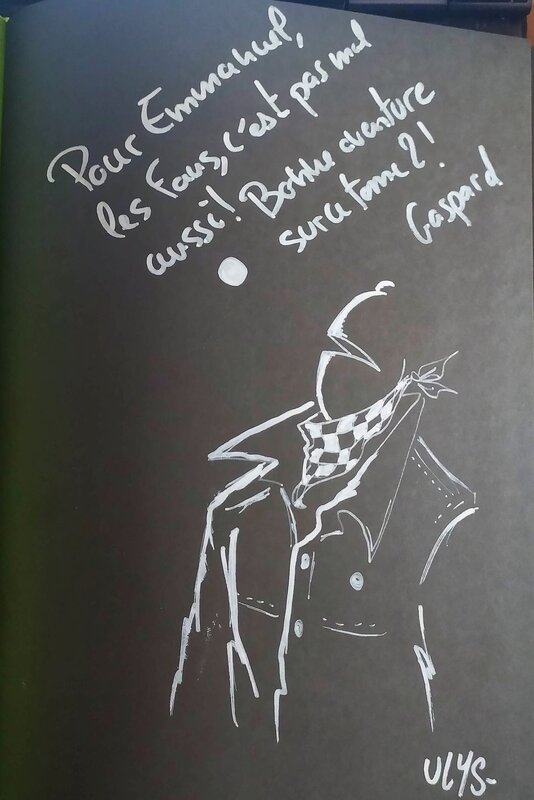 Pour Emmanuel,
les Fous, c'est pas mal
aussi! Bonne aventure
sur le tome 2!
Gaspard
ULYS-